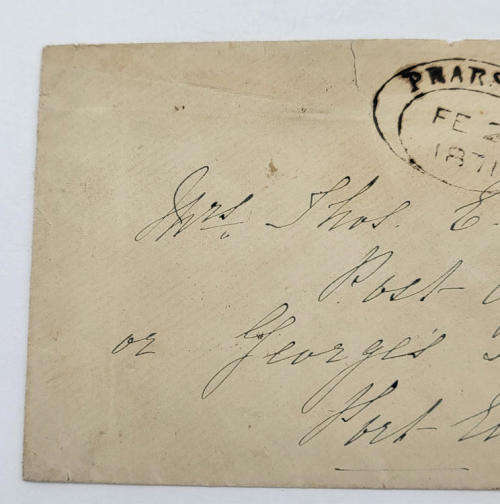 PEARS
FE 2
1871
Mrs. Thos. E.
Post
or George's
Port